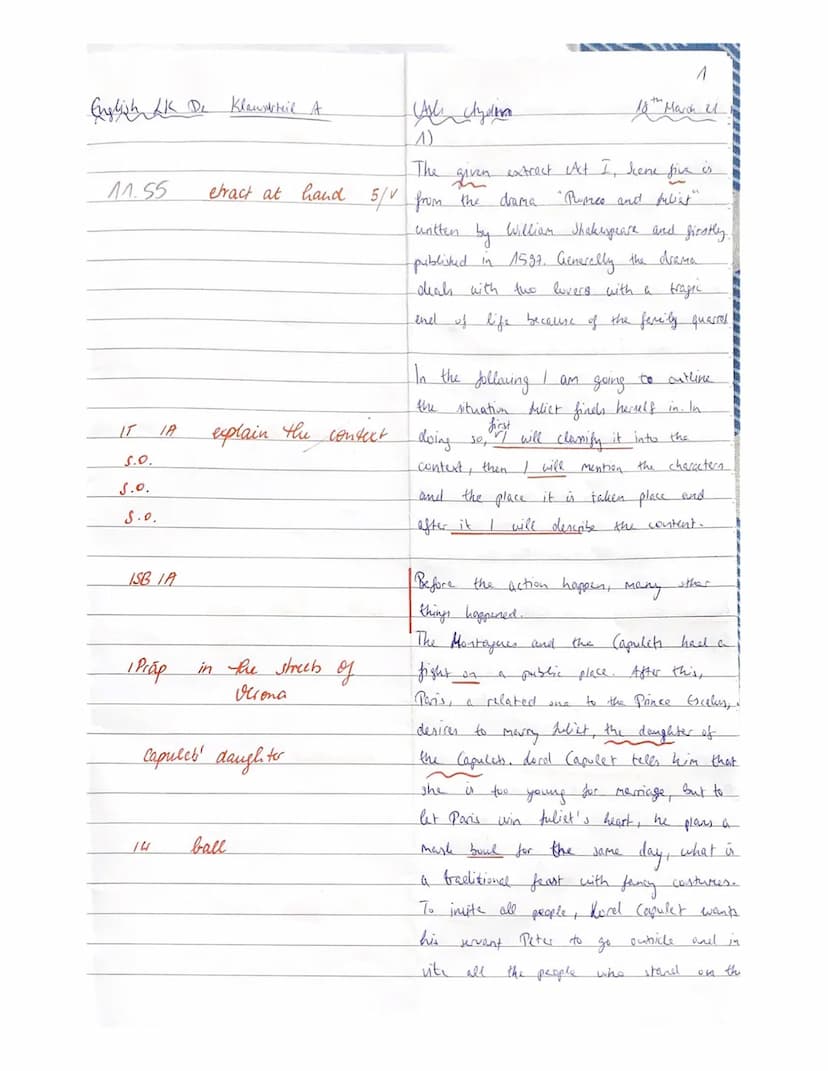 1
English LK De Klausurteil A
Aydin 18th March 21
1)
The given extract Act I, Scene five is
11.55 etract at hand 5/V
from the drama "Romeo and Juliet"
written by William Shakespeare and firstly
published in 1597. Generelly the drama
deals with two lovers with a tragic
end of life because of the family quarrel
In the following I am going to outline
the situation Juliet finds herself in. In
IT IA explain the context
doing so, first I will classify it into the
s.o.
context, then I will mention the characters
s.o.
and the place it is taken place and
s.o.
after it I will describe the content.
ISB IA
Before the action happen, many other
things happened.
The Montagues and the Capulets had a
1Präp in the streets of
Verona
fight on a public place. After this,
Paris, a related one to the Prince Escalus,
desires to marry Juliet, the daughter of
Capulets' daughter
the Capulets. Lord Capulet tells him that
she is too young for marriage, but to
let Paris win Juliet's heart, he plans a
14 ball
mask bowl for the same day, what is
a traditional feast with fancy costumes.
To invite all people, Lord Capulet wants
his servant Peter to go outside and in
vite all the people who stand on th